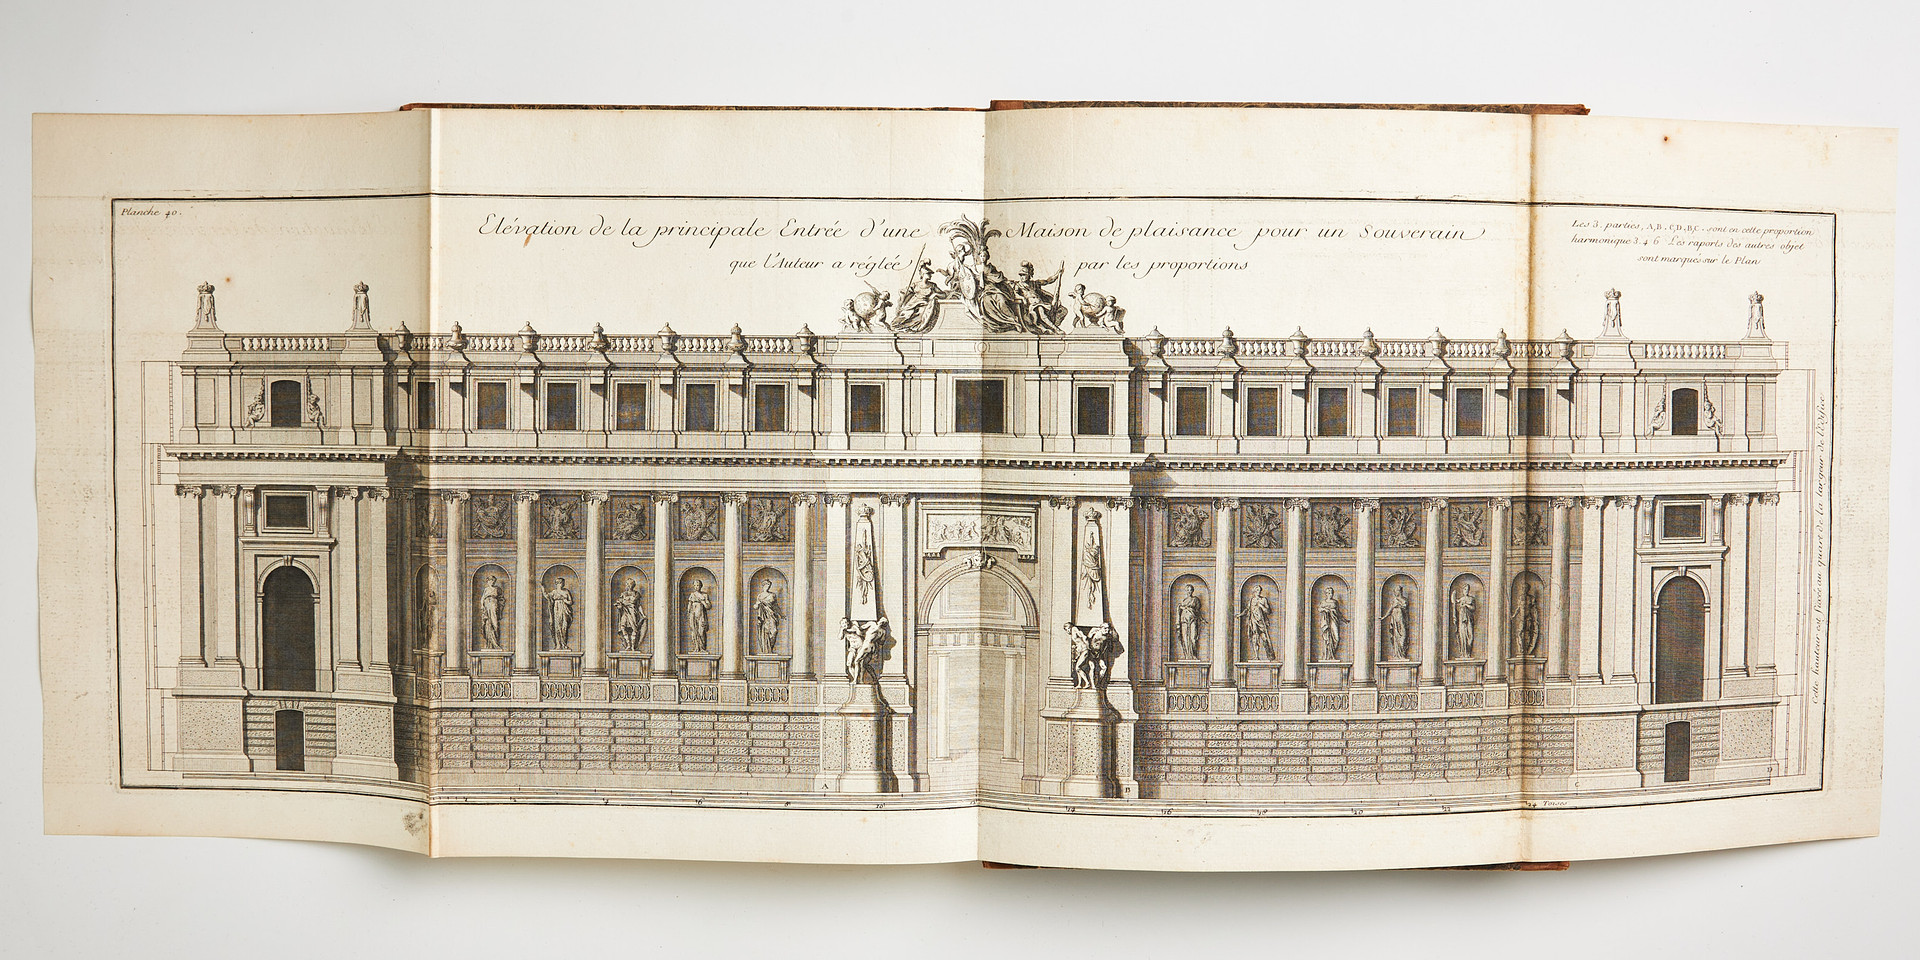 Planche 40.
Elévation de la principale Entrée d'une Maison de plaisance pour un Souverain
que l'Auteur a réglée par les proportions
Les 3. parties, A,B. C,D, B,C. sont en cette proportion
harmonique 3. 4. 6. Les raports des autres objet
sont marqués sur le Plan
Cette hauteur est fixée au quart de la largeur de l'édifice
A
B
C
D
2 4 6 8 10 12 14 16 18 20 22 24 Toises